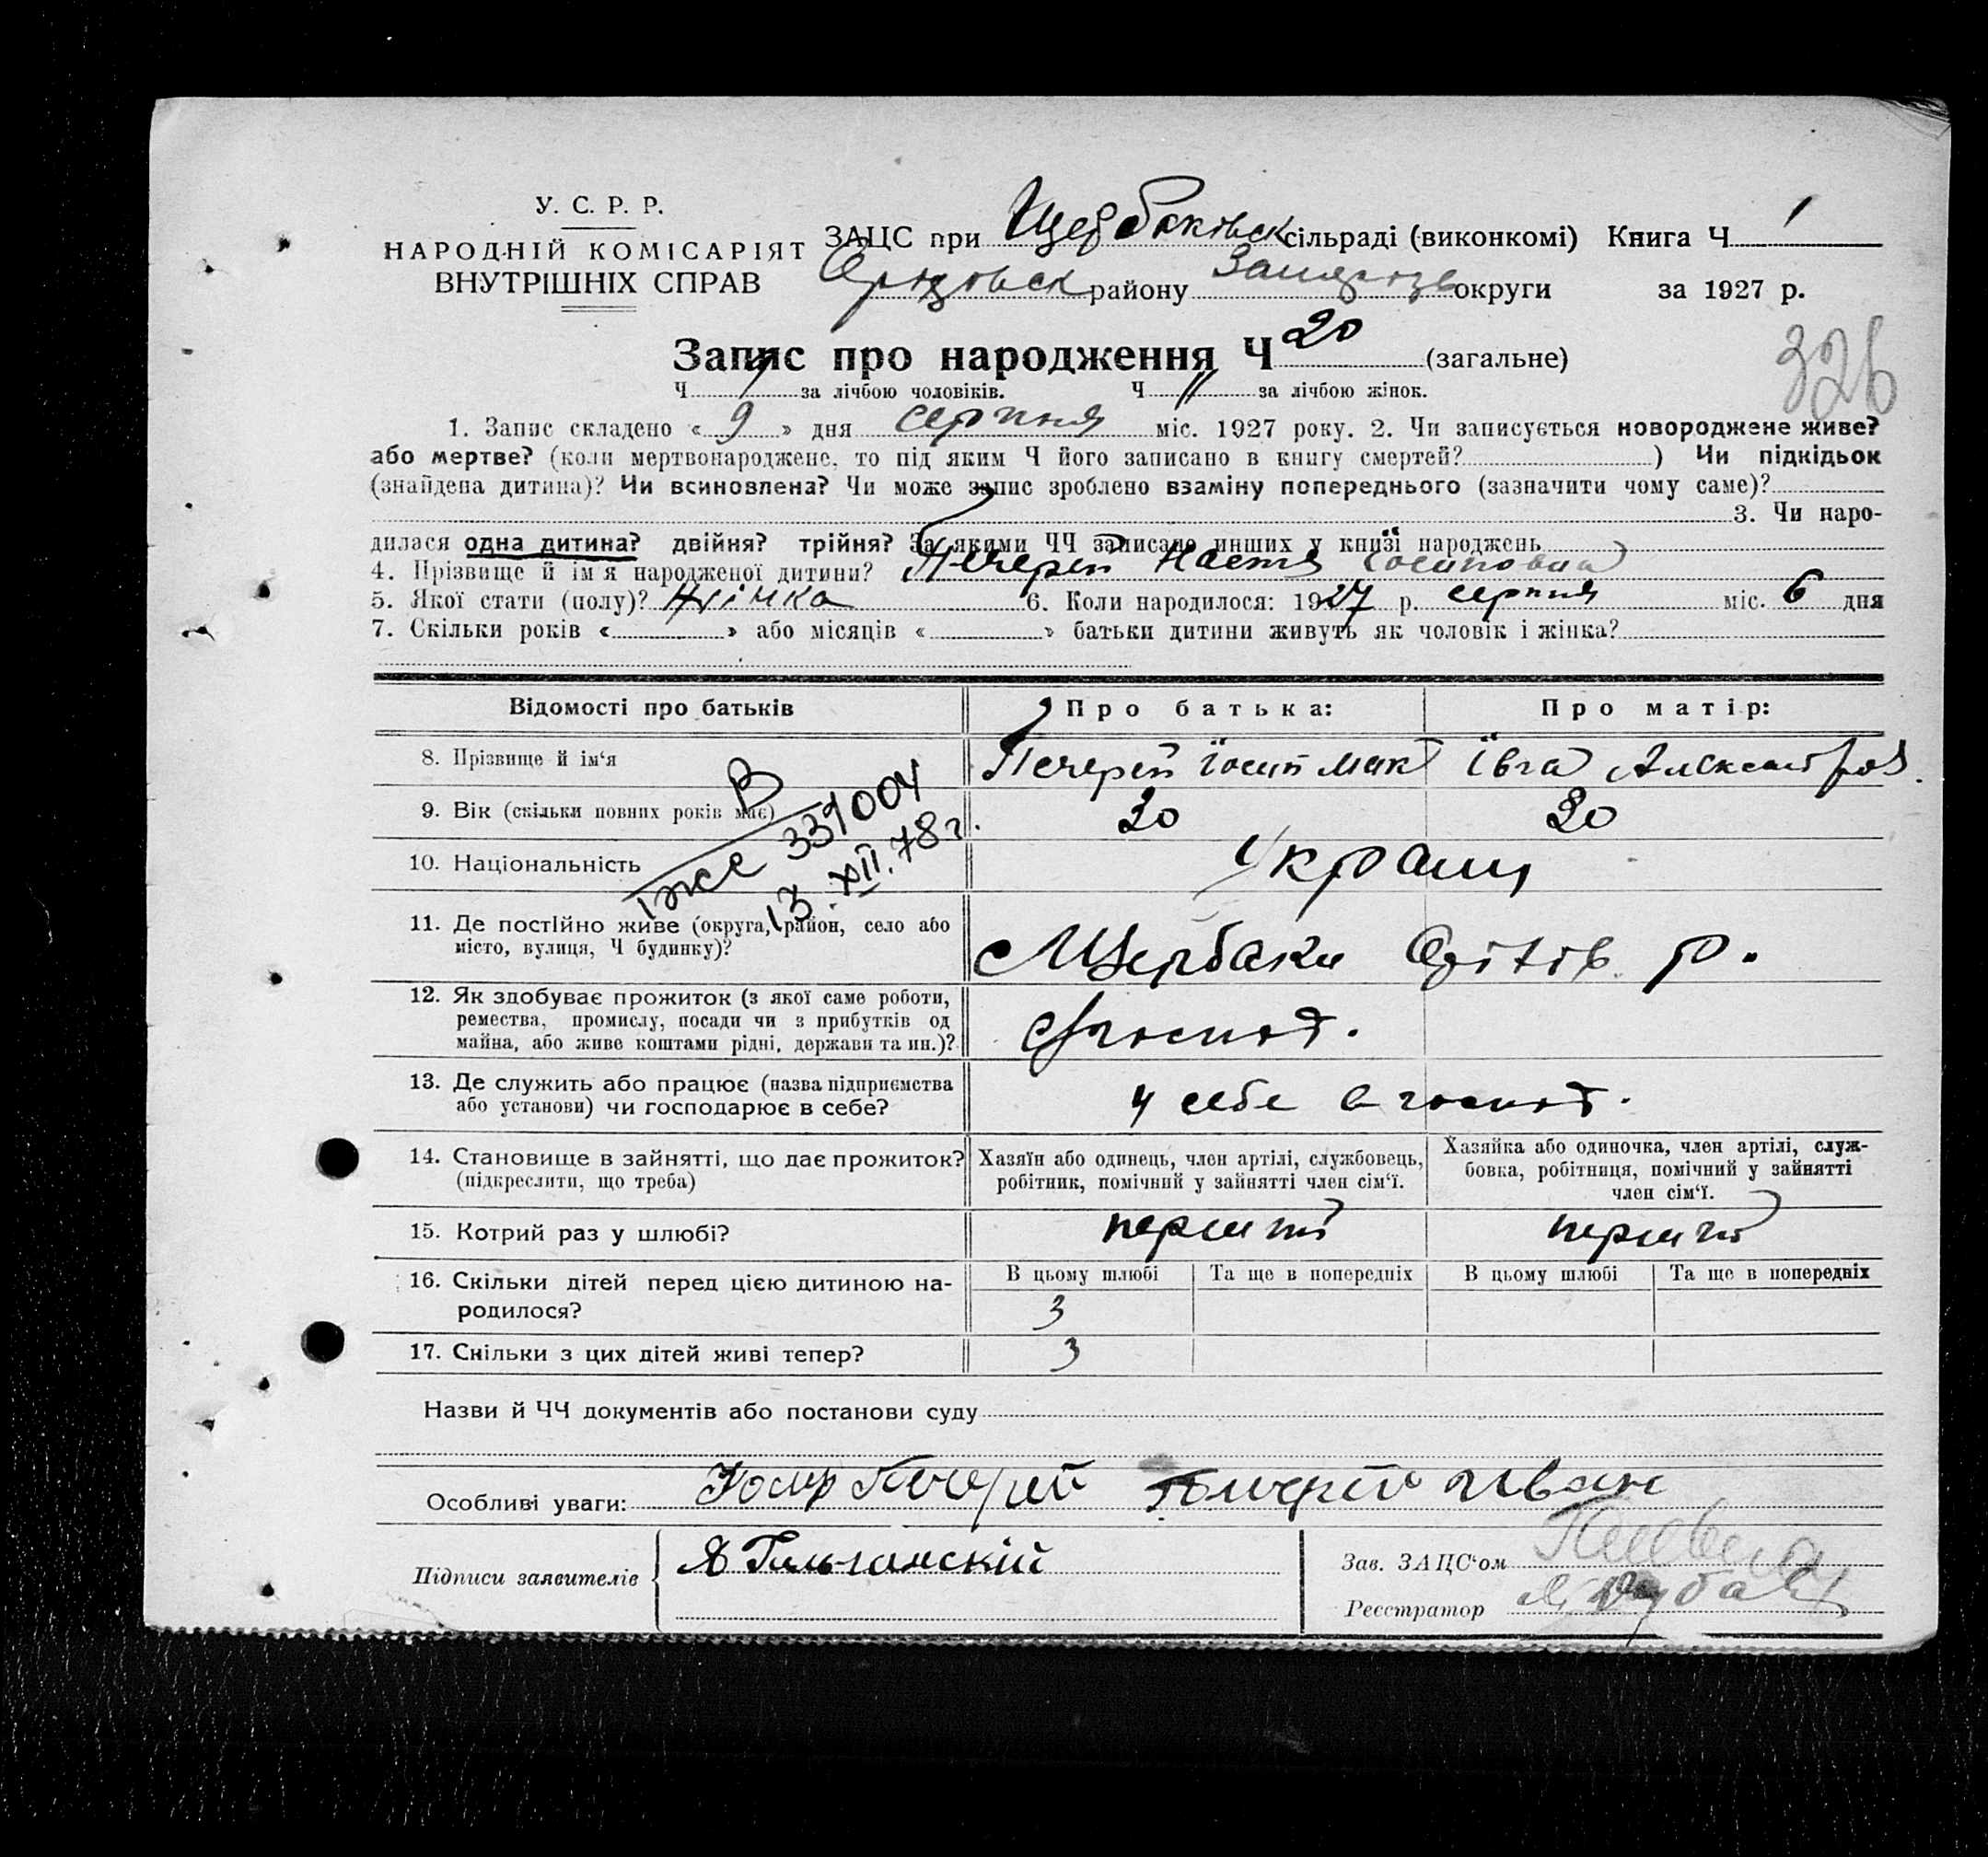 У. С. Р. Р.
НАРОДНІЙ КОМІСАРІЯТ
ВНУТРІШНІХ СПРАВ
ЗАЦС при Щербаківск сільраді (виконкомі) Книга Ч 1
району округи за 1927 р.
Запис про народження Ч 20 (загальне)
326
Ч за лічбою чоловіків. Ч 11 за лічбою жінок.
1. Запис складено « 9 » дня серпня міс. 1927 року. 2. Чи записується новороджене живе?
або мертве? (коли мертвонароджене, то під яким Ч його записано в книгу смертей? ) Чи підкідьок
(знайдена дитина)? Чи всиновлена? Чи може запис зроблено взаміну попереднього (зазначити чому саме)?
3. Чи наро-
дилася одна дитина? двійня? трійня? За якими ЧЧ записано инших у книзі народжень
4. Прізвище й ім'я народженої дитини? Печерей Настя Іосиповна
5. Якої стати (полу)? Жінка 6. Коли народилося: 1927 р. серпня міс. 6 дня
7. Скільки років « » або місяців « » батьки дитини живуть як чоловік і жінка?
Відомості про батьків Про батька: Про матір:
8. Прізвище й ім'я Печерей Іосип Мак Ївга Александров.
9. Вік (скільки повних років має) 30 30
10. Національність Україн
ІЖС 331004
13.XII.78г.
11. Де постійно живе (округа, район, село або
місто, вулиця, Ч будинку)? с Щербаки р.
12. Як здобуває прожиток (з якої саме роботи,
ремества, промислу, посади чи з прибутків од
майна, або живе коштами рідні, держави та ин.)? с/господ.
13. Де служить або працює (назва підприємства
або установи) чи господарює в себе? у себе в господ.
14. Становище в зайнятті, що дає прожиток?
(підкреслити, що треба)
Хазяїн або одинець, член артілі, службовець,
робітник, помічний у зайнятті член сім'ї.
Хазяйка або одиночка, член артілі, служ-
бовка, робітниця, помічний у зайнятті
член сім'ї.
15. Котрий раз у шлюбі? перший перший
16. Скільки дітей перед цією дитиною на-
родилося?
В цьому шлюбі Та ще в попередніх В цьому шлюбі Та ще в попередніх
3
17. Скільки з цих дітей живі тепер? 3
Назви й ЧЧ документів або постанови суду
Особливі уваги: Печерей Печерей Иван
Підписи заявителів
Зав. ЗАЦС'ом
Реєстратор